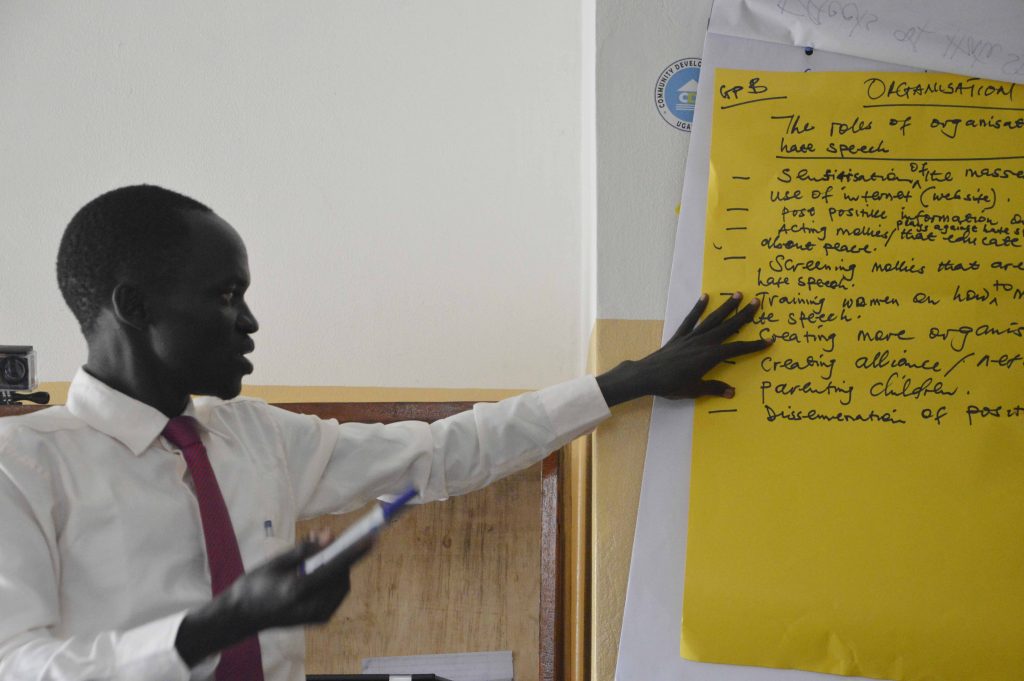 COMMUNITY DEVELO
UGA
GP B
ORGANISATION
The roles of organisat
hate speech
— Sensitisation of the masse
use of internet (website).
— post positive information o
— Acting mollies/ plays against hate s
that educate
about peace.
— Screening mollies that are
hate speech.
— Training women on how to
ate speech.
Creating more organis
Creating alliance/
parenting children.
— Dissemeration of posit